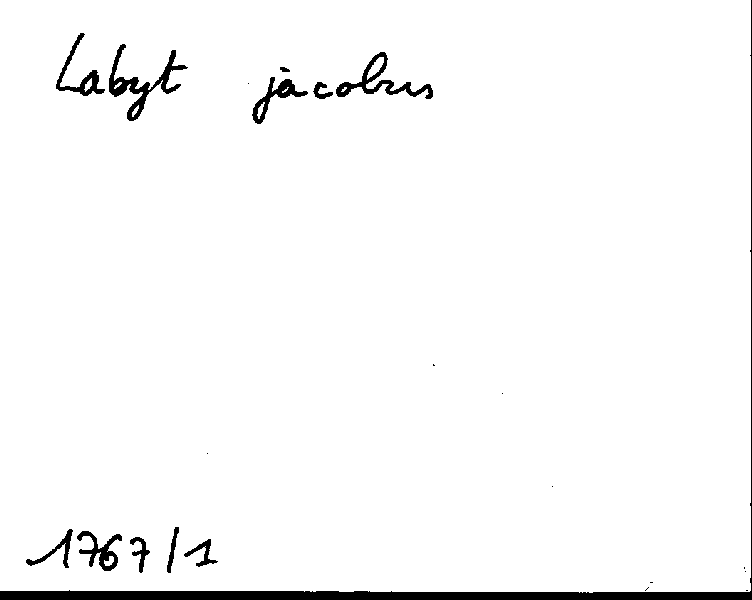 Labyt jacobus
1767/1